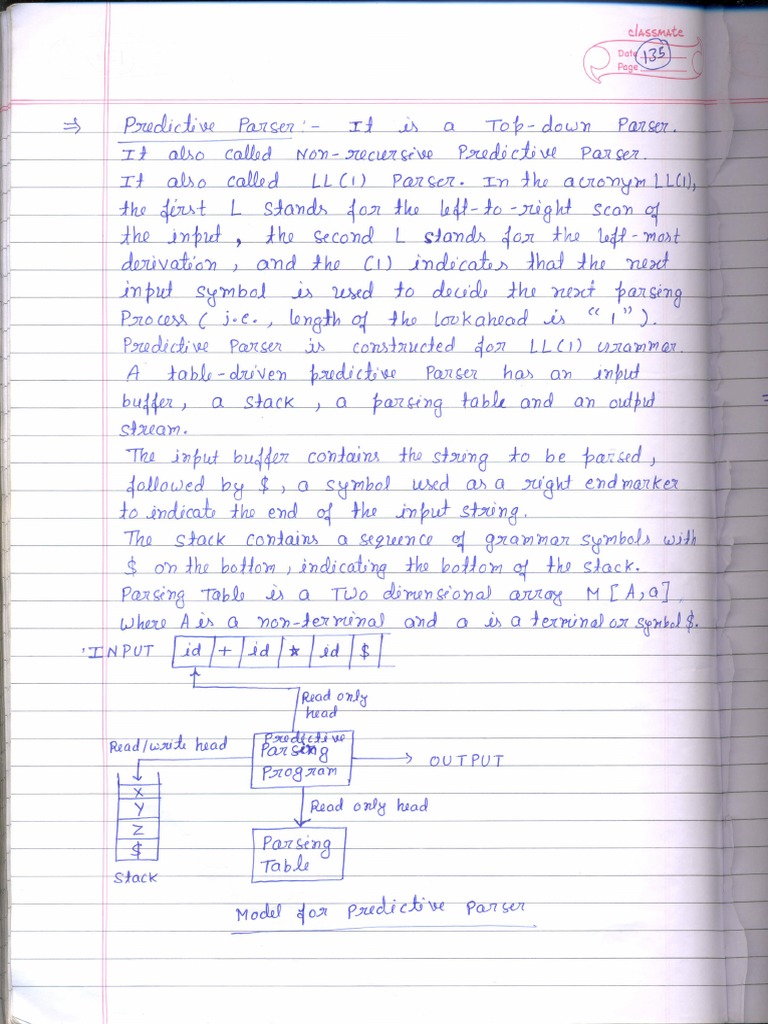 classmate
Date
Page
135
⇒ Predictive Parser:- It is a Top-down Parser.
It also called Non-recursive Predictive Parser.
It also called LL(1) Parser. In the acronym LL(1),
the first L stands for the left-to-right scan of
the input, the second L stands for the left-most
derivation, and the (1) indicates that the next
input symbol is used to decide the next parsing
Process (i.e., length of the lookahead is "1").
Predictive Parser is constructed for LL(1) Grammar.
A table-driven predictive Parser has an input
buffer, a stack, a parsing table and an output
stream.
The input buffer contains the string to be parsed,
followed by $, a symbol used as a right endmarker
to indicate the end of the input string.
The stack contains a sequence of grammar symbols with
$ on the bottom, indicating the bottom of the stack.
Parsing Table is a Two dimensional array M[A,a]
where A is a non-terminal and a is a terminal or symbol $.
INPUT id + id * id $
Read only
head
Read/write head
Predictive
Parsing
Program
OUTPUT
X
Y
Z
$
Stack
Read only head
Parsing
Table
Model for Predictive Parser